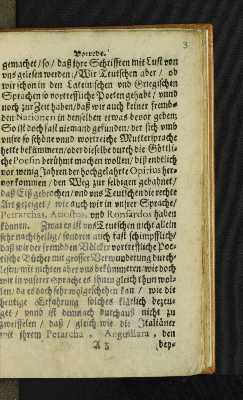 Vorrede.
3
gemachet/ so/ daß ihre Schrifften mit Lust von
uns gelesen werden:/ Wir Teutschen aber/ ob
wir schon in den Lateinischen und Griegischen
Sprachen so vortreffliche Poeten gehabt/ unnd
noch zur Zeit haben/ daß wir auch keiner fremb-
den Nationen in denselben etwas bevor geben;
So ist doch fast niemand gefunden/ der sich umb
unsre so schöne unnd wortreiche Muttersprache
hette bekümmern/ oder dieselbe durch die Göttli-
che Poesin berühmt machen wollen/ biß endtlich
vor wenig Jahren der hochgelahrte Opitius her-
vor kommen/ den Weg zur selbigen gebahnet/
daß Eiß gebrochen/ und uns Teutschen die rechte
Art gezeiget/ wie auch wir in unsrer Sprache/
Petrarchas, Ariostos, und Ronsardos haben
können. Zwar es ist uns Teutschen nicht allein
sehr nachtheilig/ sondern auch fast schimpfflich/
daß wir der frembden Völcker vortreffliche Poe-
tische Bücher mit grosser Verwunderung durch-
lesen/ mit nichten aber uns bekümmeren/ wie doch
wir in unserer Sprache es ihnen gleich thun wol-
len/ da es doch sehr wol geschehen kan/ wie die
heutige Erfahrung solches klärlich bezeu-
get/ unnd ist demnach durchauß nicht zu
zweiffelen/ daß/ gleich wie die Italiäner
mit ihrem Petrarcha, Anguillara, den
A 3